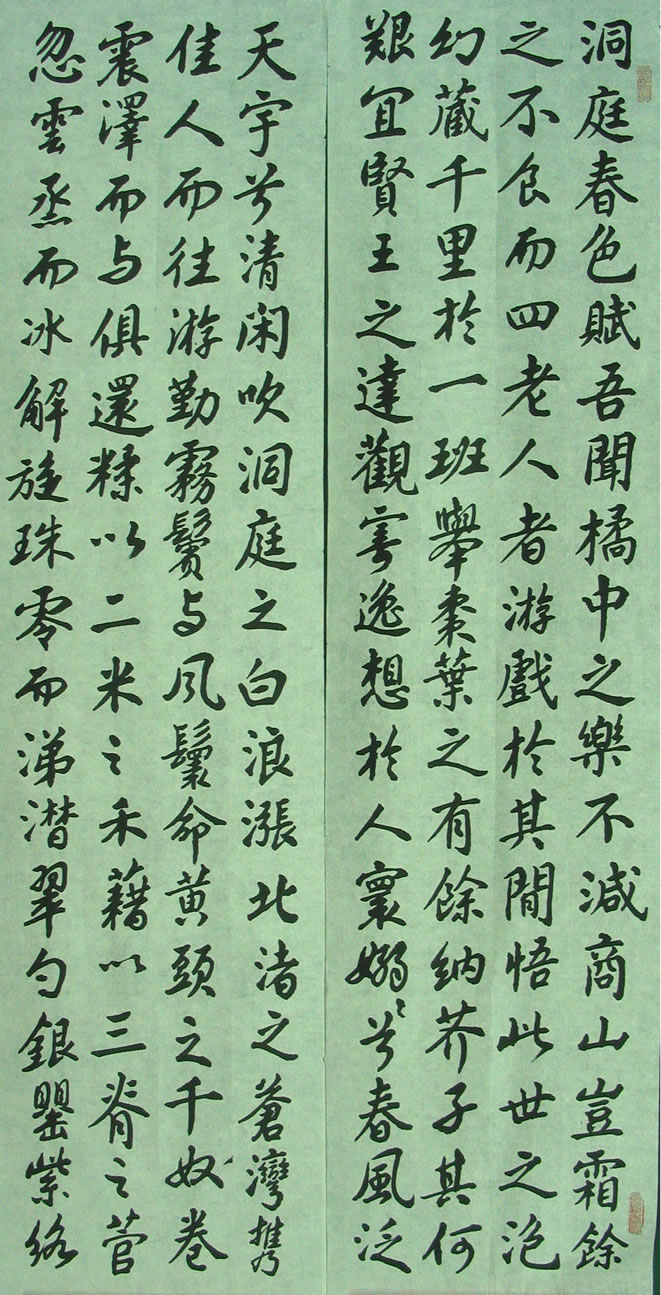 洞庭春色賦吾聞橘中之樂不減商山豈霜餘
之不食而四老人者游戲於其間悟此世之泡
幻藏千里於一班舉棗葉之有餘納芥子其何
艱宜賢王之達觀寄逸想於人寰嫋〻兮春風泛
天宇兮清閑吹洞庭之白浪漲北渚之蒼灣携
佳人而往游勤霧鬢与風鬟命黄頭之千奴卷
震澤而与俱還糅以二米之禾藉以三脊之菅
忽雲烝而冰解旋珠零而涕潸翠勺銀罌紫絡